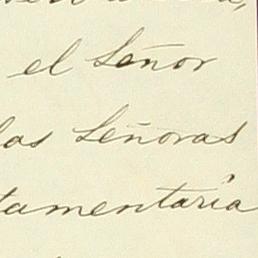 el Señor
las Señoras
tamentaria